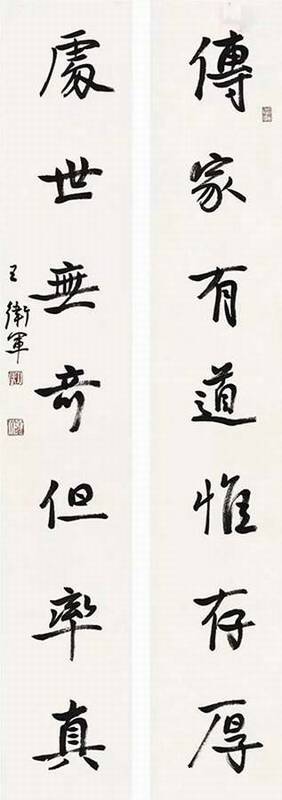 傳家有道惟存厚
處世無奇但率真
王衛軍